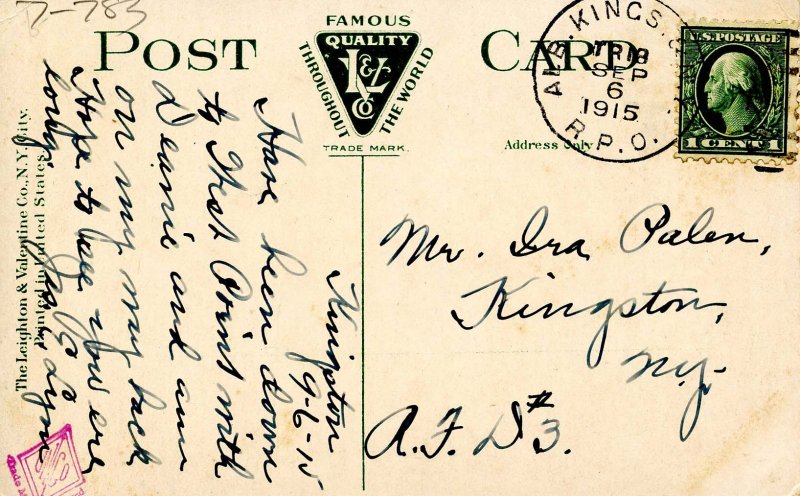 D-783
POST CARD
FAMOUS
QUALITY
L&V
Co
THROUGHOUT
THE WORLD
TRADE MARK.
ALB. KINGS.
TR 18
SEP
6
1915
R.P.O.
U.S. POSTAGE
1 CENT 1
Address Only
The Leighton & Valentine Co., N.Y. City.
Printed in United States.
Kingston
9-6-15
Have been down
to West Point with
Dearie and am
on my way back
Hope to see you ere
long.
Mr. Ira Palen,
Kingston,
N.Y.
R.F.D. #3.